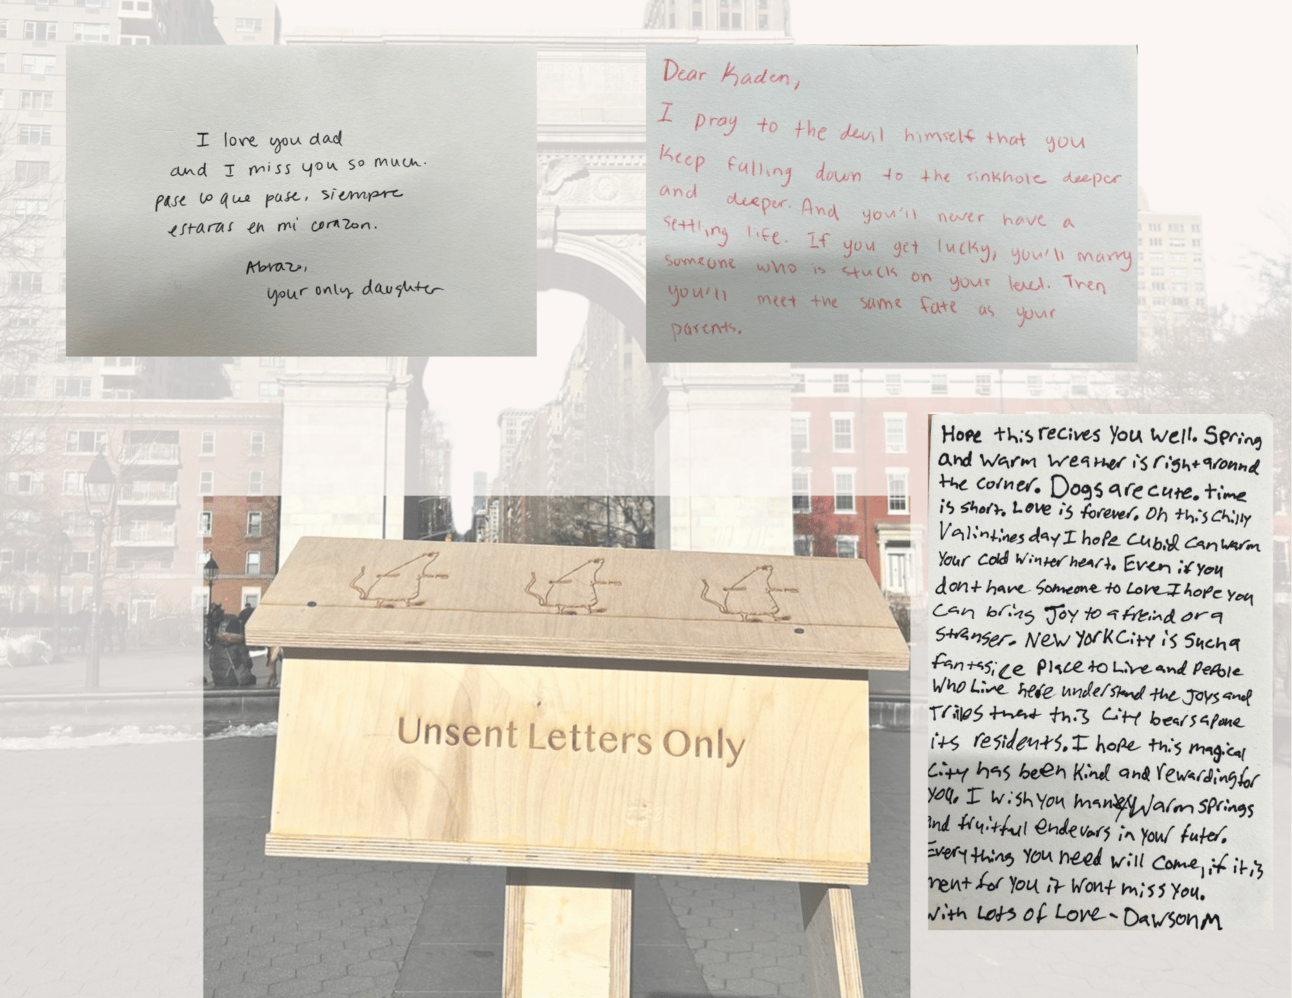 I love you dad
and I miss you so much.
pase lo que pase, siempre
estaras en mi corazon.
Abrazo,
your only daughter
Dear Kaden,
I pray to the devil himself that you
keep falling down to the sinkhole deeper
and deeper. And you'll never have a
settling life. If you get lucky, you'll marry
someone who is stuck on your level. Then
you'll meet the same fate as your
parents.
Hope this recives You Well. Spring
and warm weather is right around
the corner. Dogs are cute. time
is short. Love is forever. On this chilly
Valintines day I hope Cubid can warm
Your cold winter heart. Even if you
dont have someone to Love I hope you
can bring Joy to a freind or a
stranger. New York City is such a
fantasice Place to Live and PePole
Who Live here understand the Joys and
Tribs that this City bears apone
its residents. I hope this magical
City has been kind and rewarding for
you. I wish you many Warm springs
and fruitfull endevars in your futer.
Everything you need will come, if it is
ment for you it wont miss you.
With Lots of Love - Dawson M
Unsent Letters Only